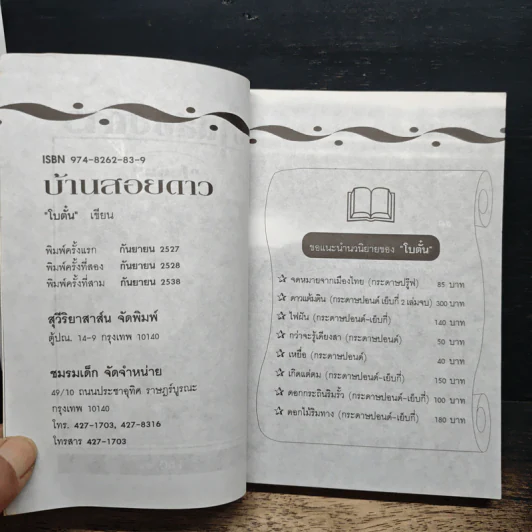 ISBN 974-8262-83-9
บ้านสอยดาว
"โบตั๋น" เขียน
พิมพ์ครั้งแรก กันยายน 2527
พิมพ์ครั้งที่สอง กันยายน 2528
พิมพ์ครั้งที่สาม กันยายน 2538
สุวีริยาสาส์น จัดพิมพ์
ตู้ปณ. 14-9 กรุงเทพ 10140
ชมรมเด็ก จัดจำหน่าย
49/10 ถนนประชาอุทิศ ราษฎร์บูรณะ
กรุงเทพ 10140
โทร. 427-1703, 427-8316
โทรสาร 427-1703
ขอแนะนำนวนิยายของ "โบตั๋น"
☆ จดหมายจากเมืองไทย (กระดาษปรู๊ฟ) 85 บาท
☆ ดาวแต้มดิน (กระดาษปอนด์ เย็บกี่ 2 เล่มจบ) 300 บาท
☆ ไฟผัน (กระดาษปอนด์-เย็บกี่) 140 บาท
☆ กว่าจะรู้เดียงสา (กระดาษปอนด์) 50 บาท
☆ เหยื่อ (กระดาษปอนด์) 40 บาท
☆ เกิดแต่ตม (กระดาษปอนด์-เย็บกี่) 150 บาท
☆ ดอกกระถินริมรั้ว (กระดาษปอนด์-เย็บกี่) 100 บาท
☆ ดอกไม้ริมทาง (กระดาษปอนด์-เย็บกี่) 180 บาท